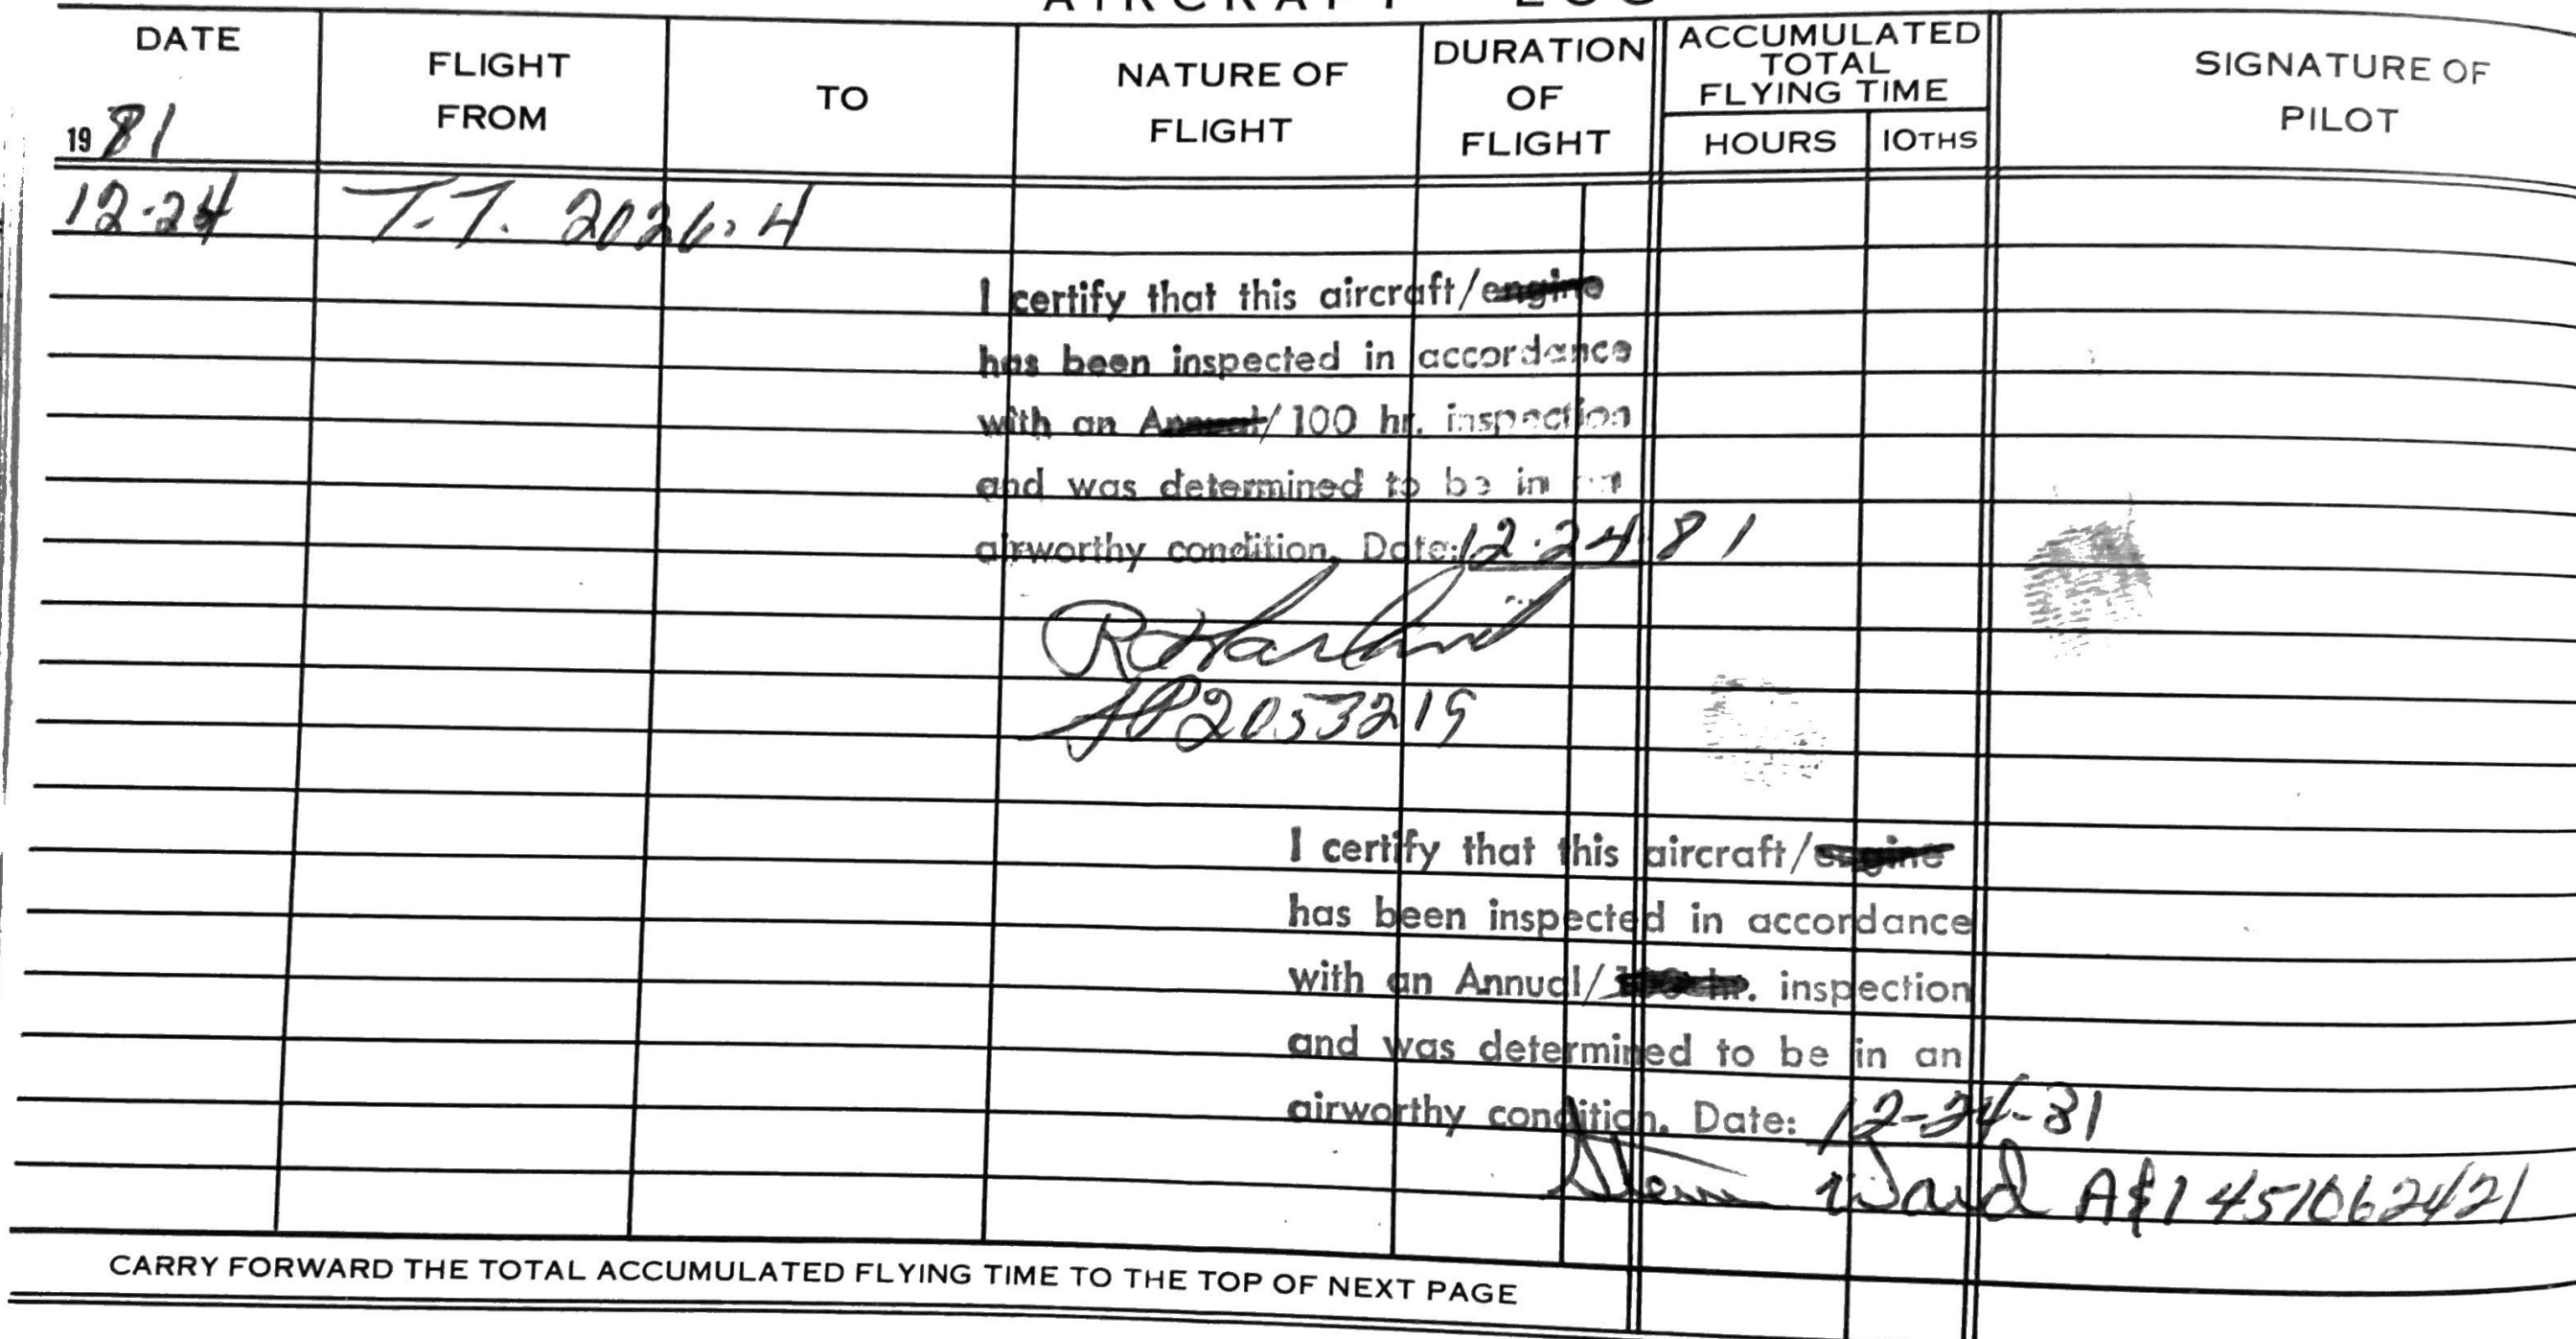 AIRCRAFT LOG
DATE
1981
FLIGHT FROM
TO
NATURE OF FLIGHT
DURATION OF FLIGHT
ACCUMULATED TOTAL FLYING TIME
HOURS
10THS
SIGNATURE OF PILOT
12-24 T.T. 2026.4
I certify that this aircraft/engine
has been inspected in accordance
with an Annual/100 hr. inspection
and was determined to be in an
airworthy condition. Date: 12-24 81
AP2053219
I certify that this aircraft/engine
has been inspected in accordance
with an Annual/100 hr. inspection
and was determined to be in an
airworthy condition. Date: 12-24-81
Ward A&I 451062421
CARRY FORWARD THE TOTAL ACCUMULATED FLYING TIME TO THE TOP OF NEXT PAGE